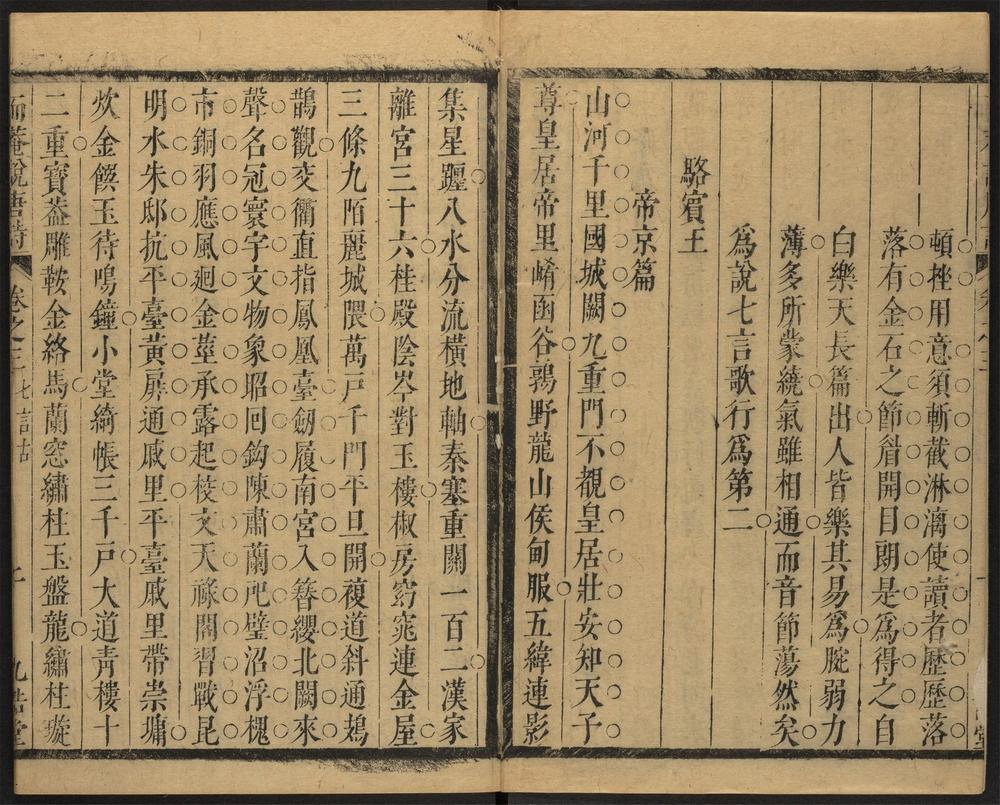 頓挫用意須斬截淋漓使讀者歷歷落
落有金石之節眉開目朗是爲得之自
白樂天長篇出人皆樂其易爲腕弱力
薄多所蒙繞氣雖相通而音節蕩然矣
爲說七言歌行爲第二
駱賓王
帝京篇
山河千里國城闕九重門不覩皇居壯安知天子
尊皇居帝里崤函谷鶉野龍山侯甸服五緯連影
集星躔八水分流橫地軸秦塞重關一百二漢家
離宮三十六桂殿陰岑對玉樓椒房窈窕連金屋
三條九陌麗城隈萬戸千門平旦開複道斜通鳷
鵲觀交衢直指鳳凰臺劒履南宮入簪纓北闕來
聲名冠寰宇文物象昭囘鈎陳肅蘭戺璧沼浮槐
市銅羽應風廻金莖承露起校文天祿閣習戰昆
明水朱邸抗平臺黃扉通戚里平臺戚里帶崇墉
炊金饌玉待鳴鐘小堂綺帳三千戸大道青樓十
二重寶葢雕鞍金絡馬蘭窓繡柱玉盤龍繡柱璇
而菴說唐詩 卷之三 七言古 九誥堂